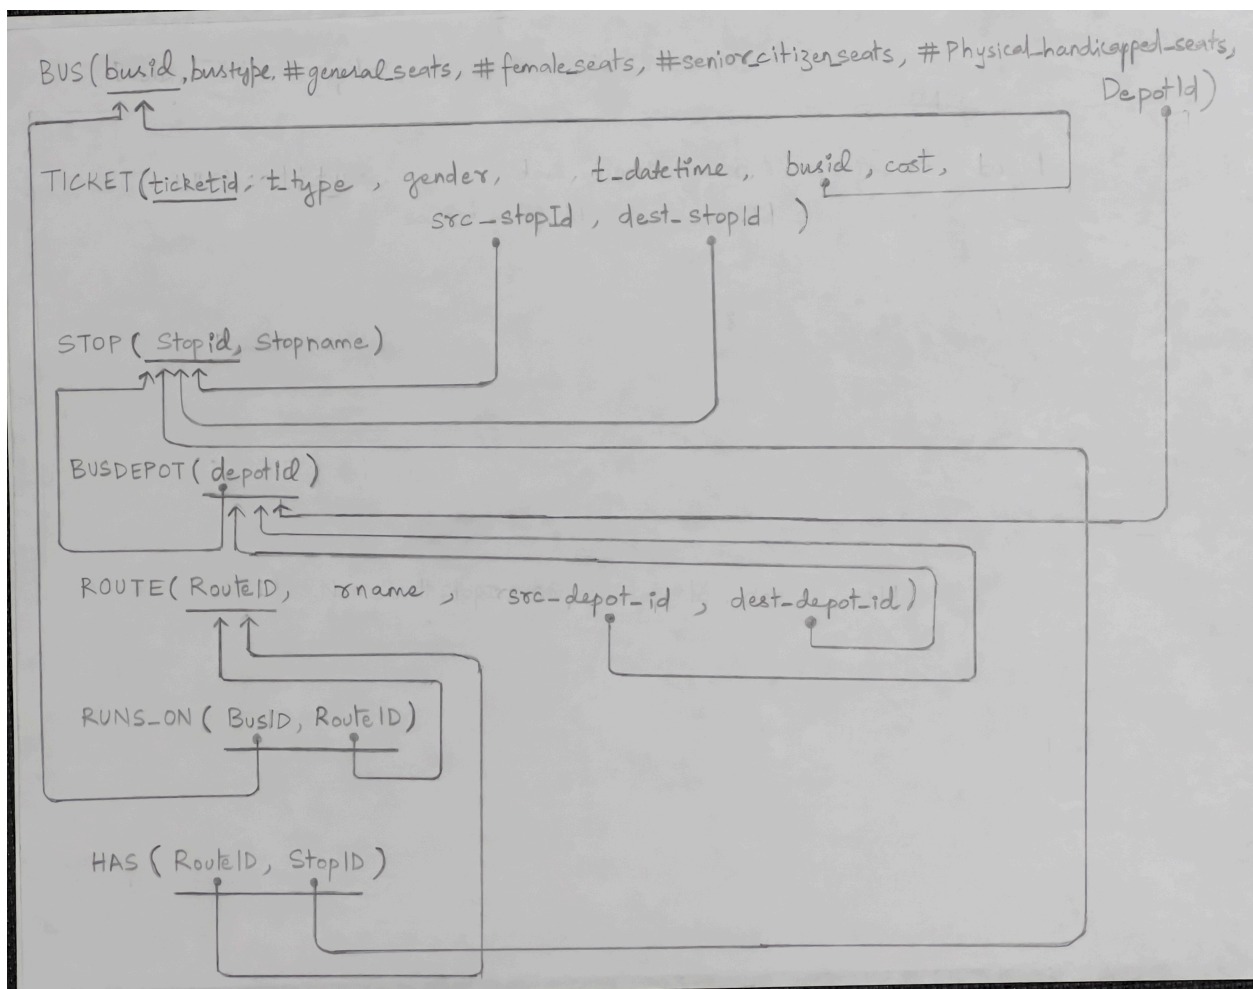 BUS(busid, bustype, #general_seats, #female_seats, #senior_citizen_seats, #Physical_handicapped_seats,
DepotId)
TICKET(ticketid, t_type, gender, t_datetime, busid, cost,
src_stopId, dest_stopId)
STOP(Stopid, Stopname)
BUSDEPOT(depotId)
ROUTE(RouteID, rname, src_depot_id, dest_depot_id)
RUNS_ON(BusID, RouteID)
HAS(RouteID, StopID)